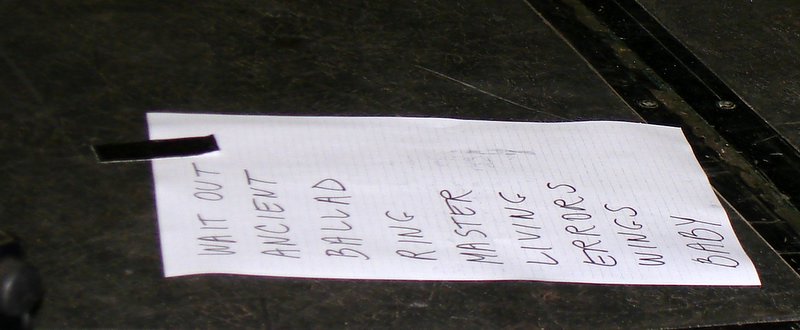 WAIT OUT
ANCIENT
BALLAD
RING
MASTER
LIVING
ERRORS
WINGS
BABY